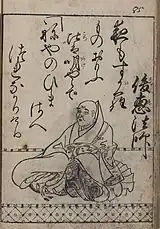 俊恵法師
夜もすから
ものおもふ
比は明やら
ねやのひま
さへ
つれなかりけり